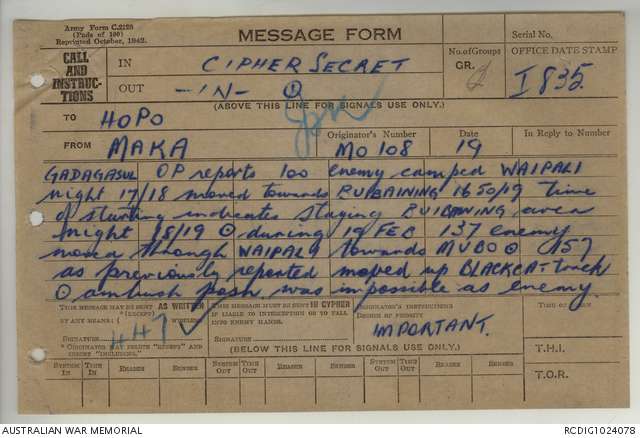 Army Form C.2128
(Pads of 100)
Reprinted October, 1942.
MESSAGE FORM
Serial No.
CALL
AND
INSTRUC-
TIONS
IN CIPHER SECRET
No. of Groups
GR.
OFFICE DATE STAMP
I 835
OUT -IN-
(ABOVE THIS LINE FOR SIGNALS USE ONLY.)
TO HOPO
FROM MAKA
Originator's Number
MO 108
Date
19
In Reply to Number
GADAGASUL OP reports 100 enemy camped WAIPALI
night 17/18 moved towards BUIBAINING 1650/19 time
of starting indicates staging BUIBAINING area
night 18/19 ⊙ during 19 FEB 137 enemy
moved through WAIPALI towards MUBO ⊙ (157
as previously reported moved up BLACKCAT track
⊙ ambush posn was impossible as enemy.
THIS MESSAGE MAY BE SENT AS WRITTEN
BY ANY MEANS (*EXCEPT) WIRELESS
SIGNATURE
447
* ORIGINATOR MAY DELETE "EXCEPT" AND
INSERT "INCLUDING."
THIS MESSAGE MUST BE SENT IN CYPHER
IF LIABLE TO INTERCEPTION OR TO FALL
INTO ENEMY HANDS.
SIGNATURE
ORIGINATOR'S INSTRUCTIONS
DEGREE OF PRIORITY
IMPORTANT.
TIME OF ORIGIN
(BELOW THIS LINE FOR SIGNALS USE ONLY.)
T.H.I.
T.O.R.
SYSTEM IN TIME IN READER SENDER SYSTEM OUT TIME OUT READER SENDER SYSTEM OUT TIME OUT READER SENDER
AUSTRALIAN WAR MEMORIAL
RCDIG1024078